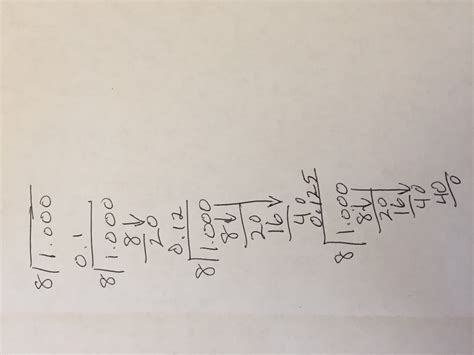 8 1.000
0.1
8 1.000
8
20
0.12
8 1.000
8
20
16
40
0.125
8 1.000
8
20
16
40
40
0